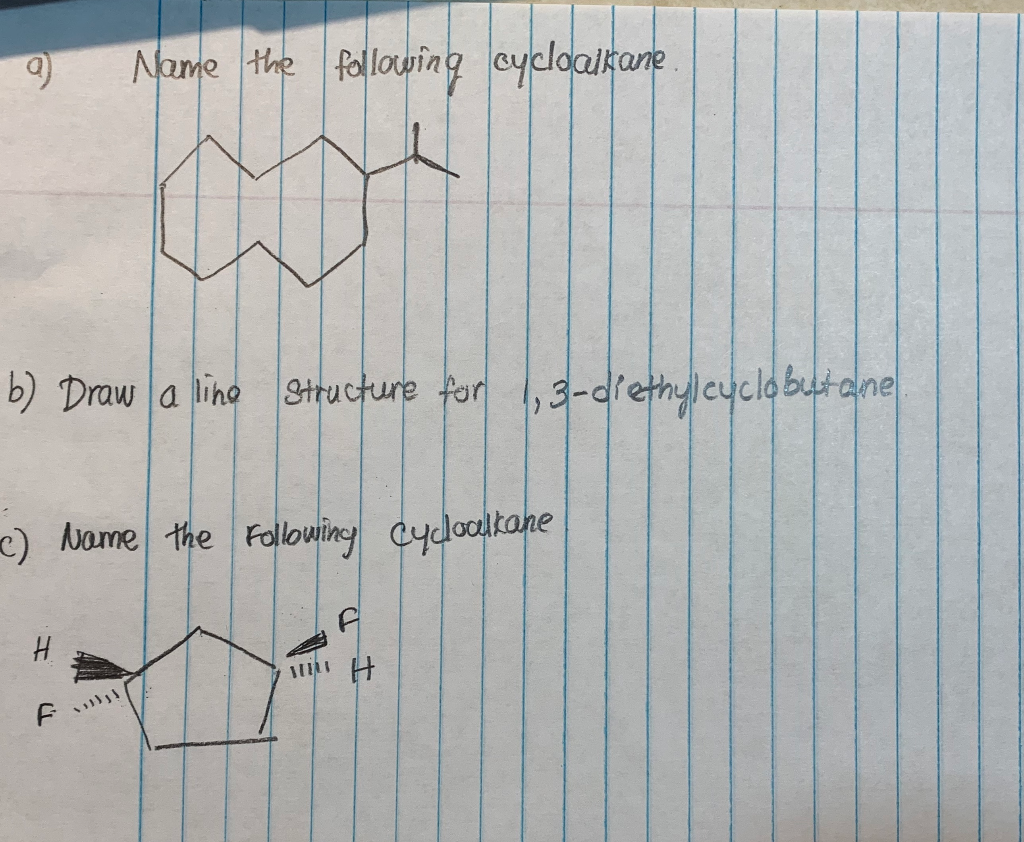 a) Name the following cycloalkane.
b) Draw a line structure for 1,3-diethylcyclobutane.
c) Name the Following Cycloalkane
H F
F H